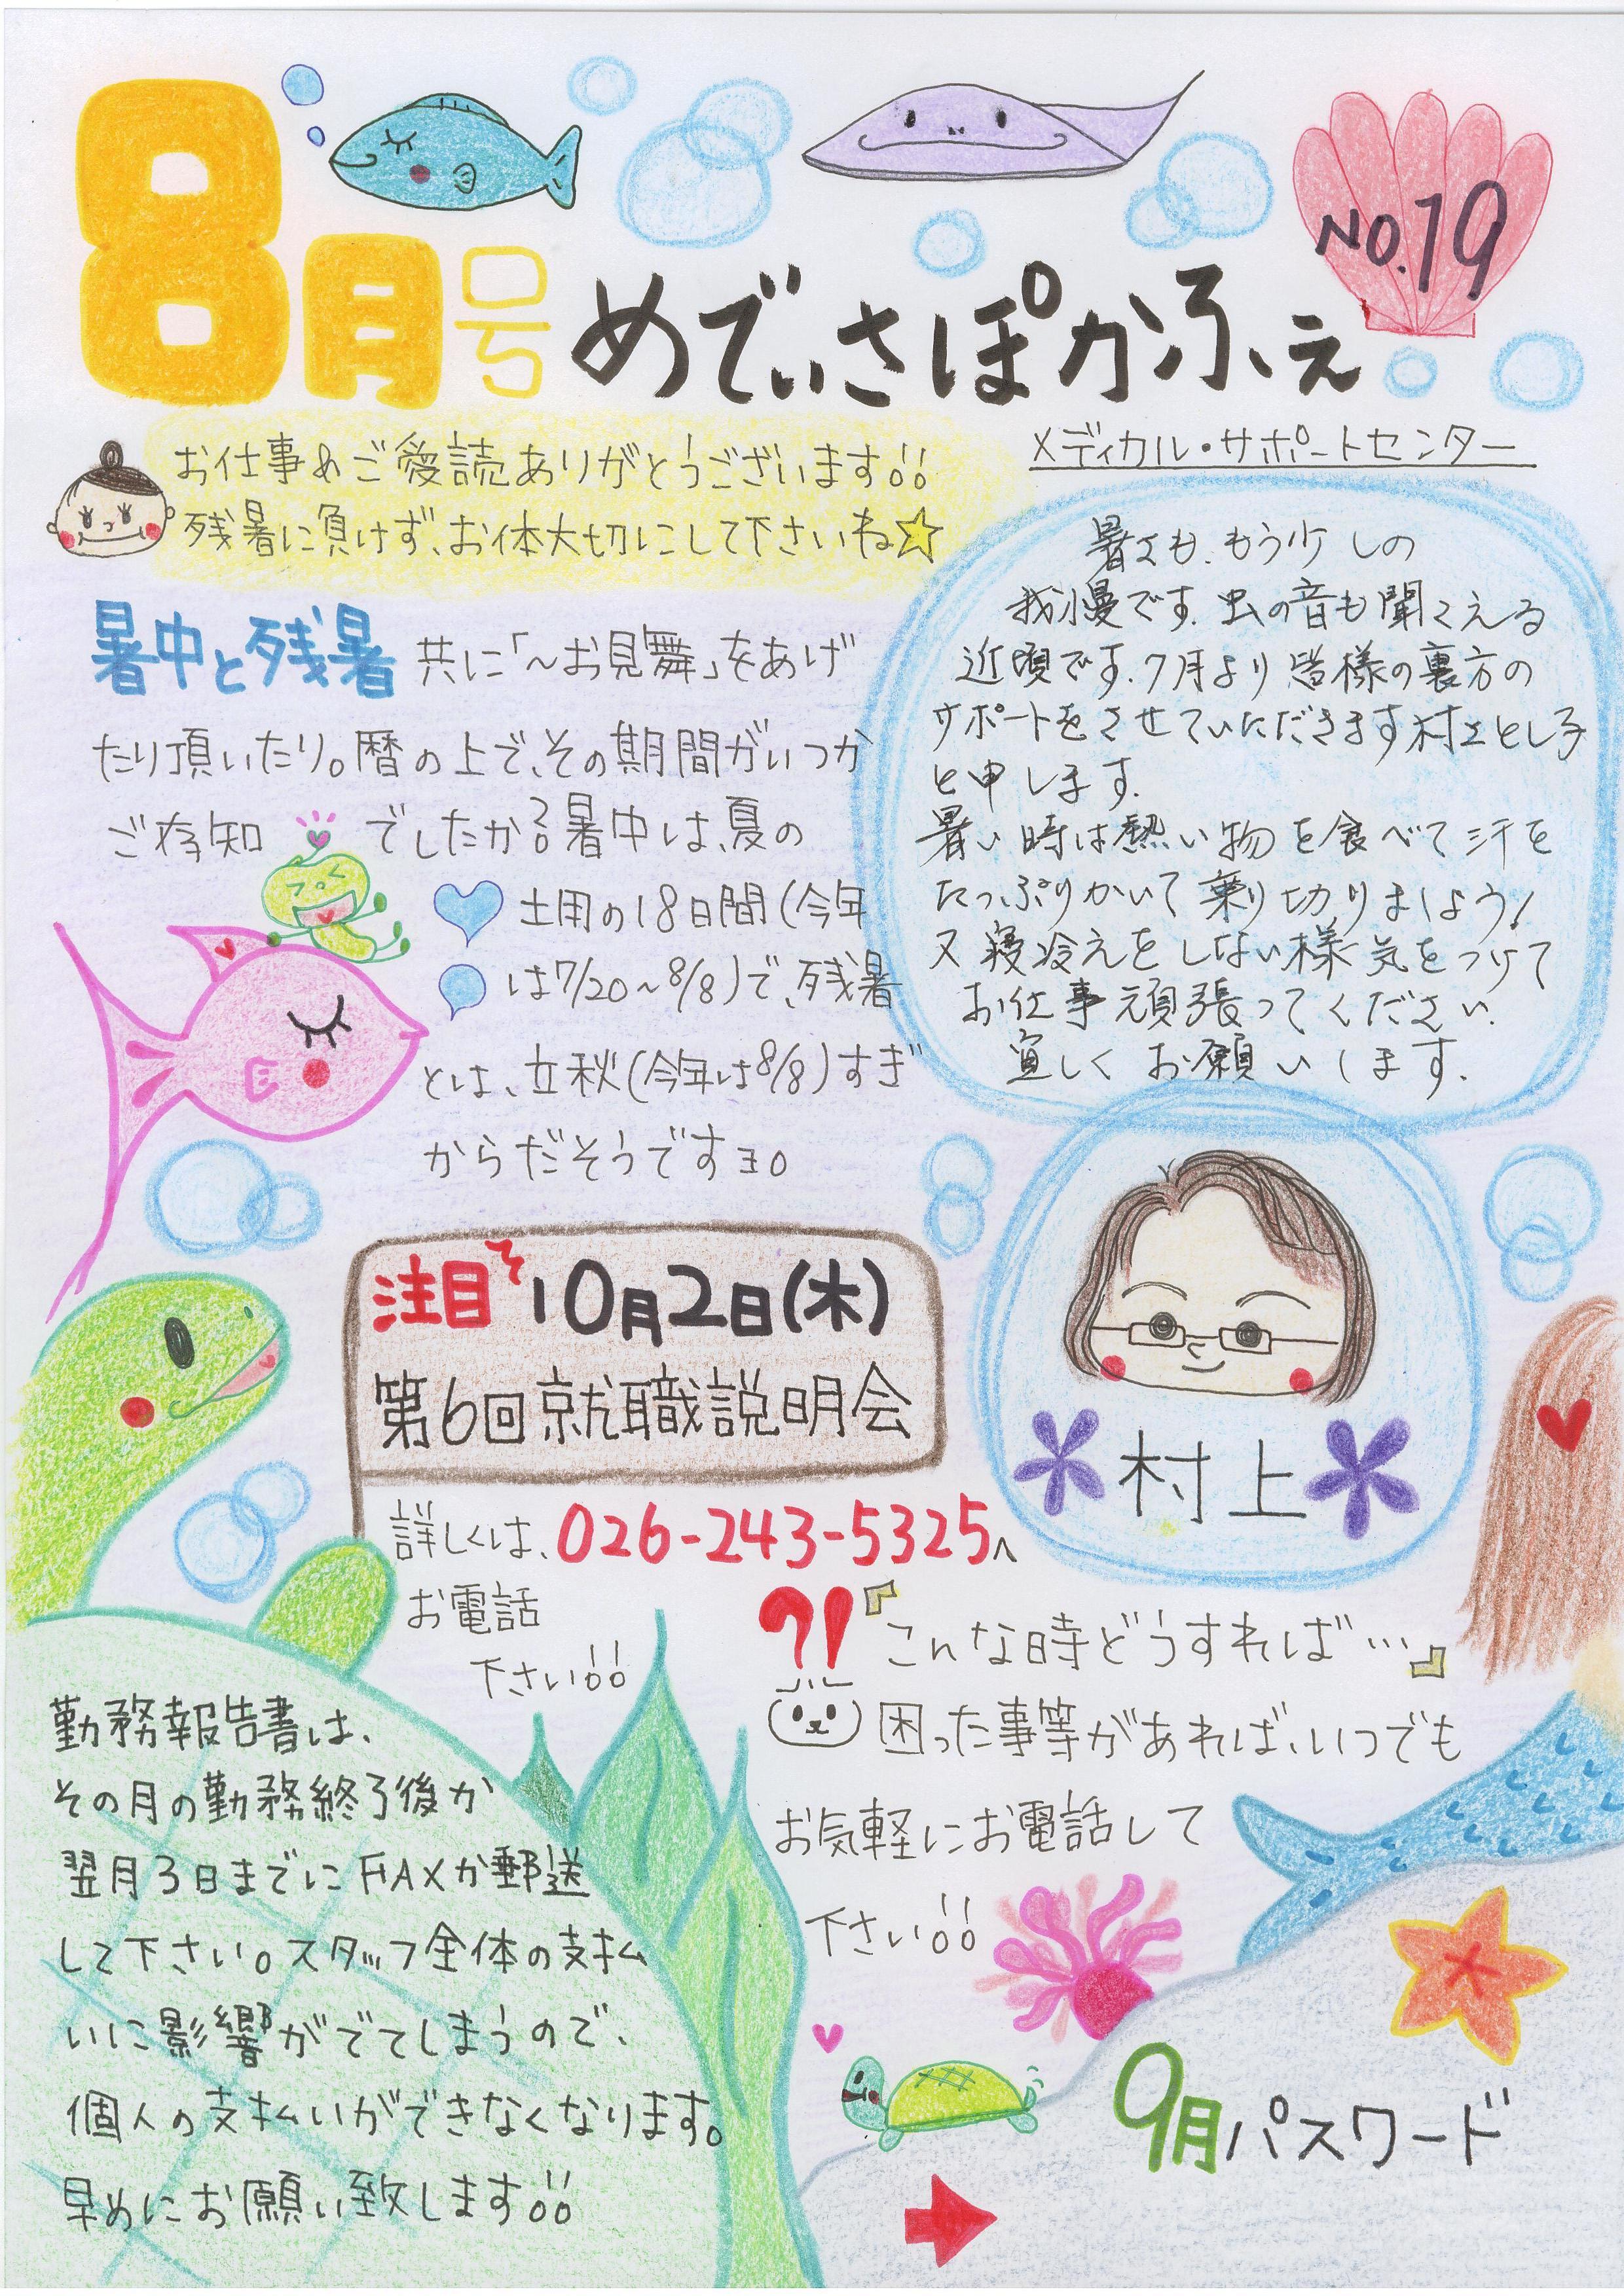 8月号 めでぃさぽかふぇ
NO.19
メディカル・サポートセンター
お仕事めご愛読ありがとうございます!!
残暑に負けず、お体大切にして下さいね☆
暑中と残暑 共に「〜お見舞」をあげ
たり頂いたり。暦の上で、その期間がいつか
ご存知でしたか?暑中は、夏の
土用の18日間(今年
は7/20〜8/8)で、残暑
とは、立秋(今年は8/8)すぎ
からだそうですョ。
暑さも、もう少しの
我慢です。虫の音も聞こえる
近頃です。7月より皆様の裏方の
サポートをさせていただきます村上とし子
と申します。
暑い時は熱い物を食べて汗を
たっぷりかいて乗り切りましょう!
又寝冷えをしない様気をつけて
お仕事頑張ってください。
宜しくお願いします。
村上
注目 10月2日(木)
第6回就職説明会
詳しくは、026-243-5325へ
お電話
下さい!!
?!『こんな時どうすれば…』
困った事等があれば、いつでも
お気軽にお電話して
下さい!!
勤務報告書は、
その月の勤務終了後か
翌月3日までにFAXか郵送
して下さい。スタッフ全体の支払
いに影響がでてしまうので、
個人の支払いができなくなります。
早めにお願い致します!!
9月パスワード